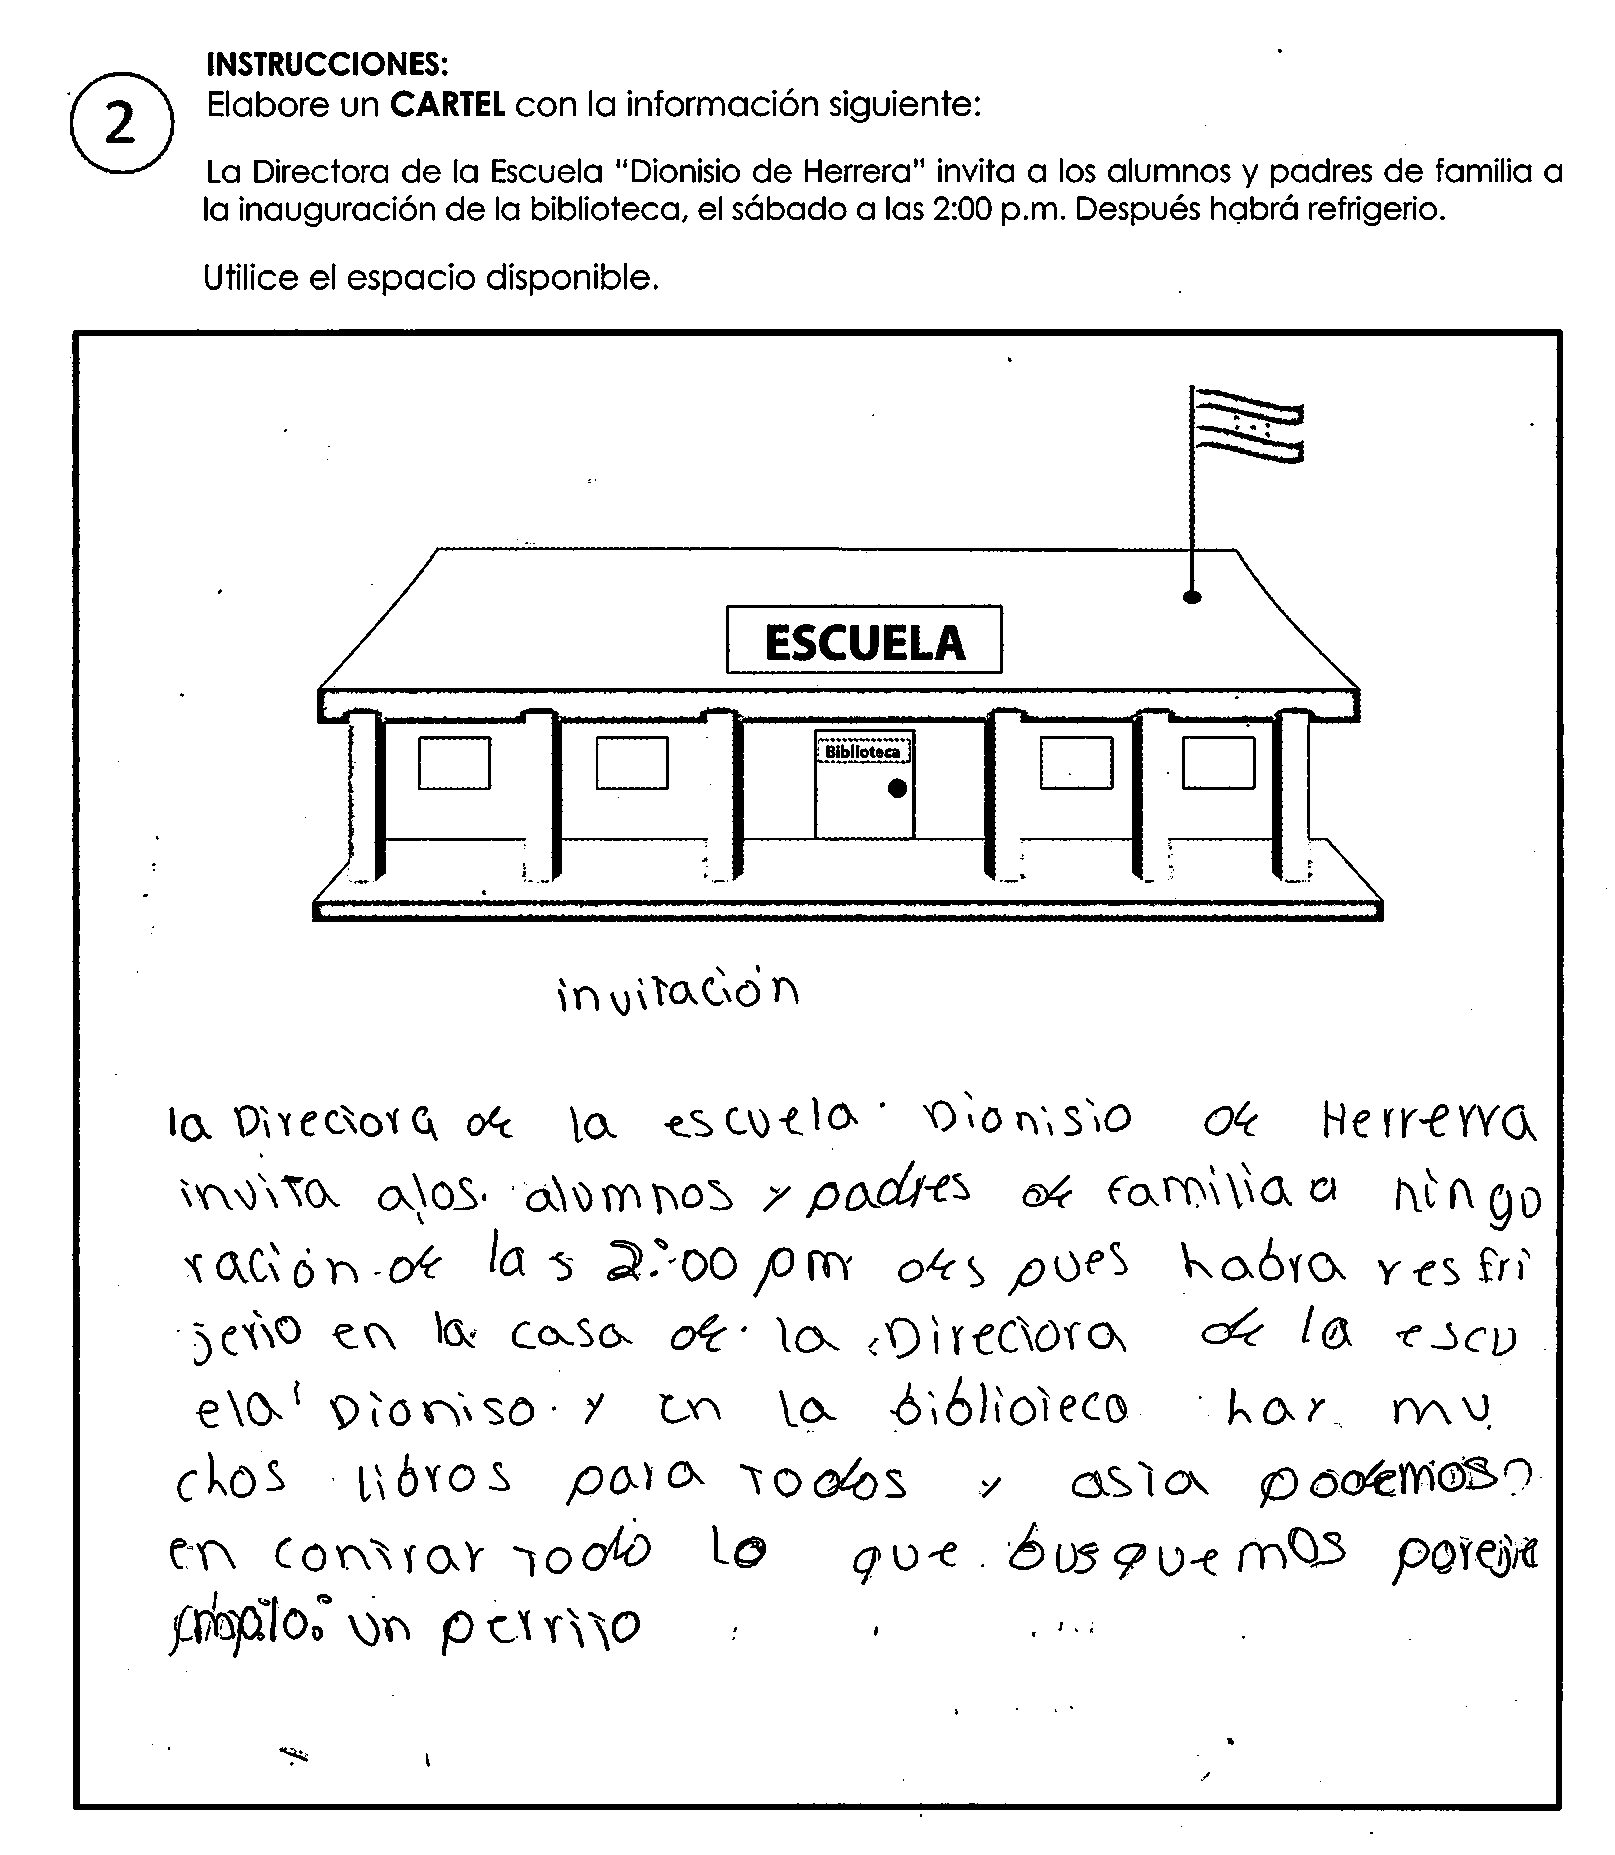 INSTRUCCIONES:
2
Elabore un CARTEL con la información siguiente:
La Directora de la Escuela "Dionisio de Herrera" invita a los alumnos y padres de familia a
la inauguración de la biblioteca, el sábado a las 2:00 p.m. Después habrá refrigerio.
Utilice el espacio disponible.
ESCUELA
Biblioteca
invitación
la Directora de la escuela Dionisio de Herrerra
invita alos alumnos y padres de familia a ningo
ración de la s 2:00 pm des pues habra resfri
jerio en la casa de la Directora de la escu
ela Dioniso y en la biblioteca har mu
chos libros para Todos y asia podemos
en contrar Todo lo que busquemos poreje
un perrito